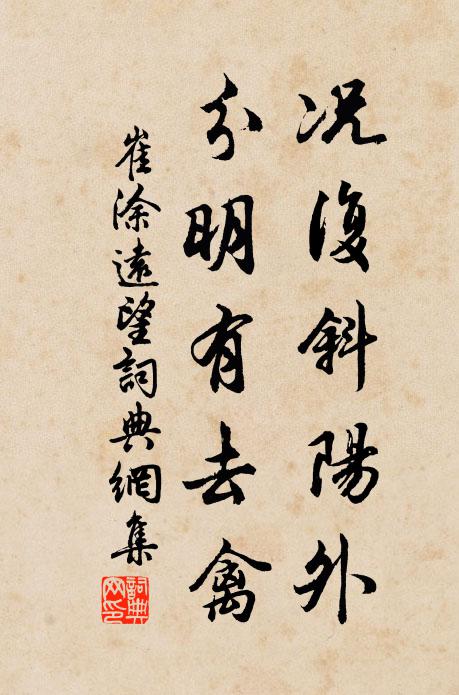 况復斜陽外
分明有去禽
崔涂遠望詞典網集
詞典网印